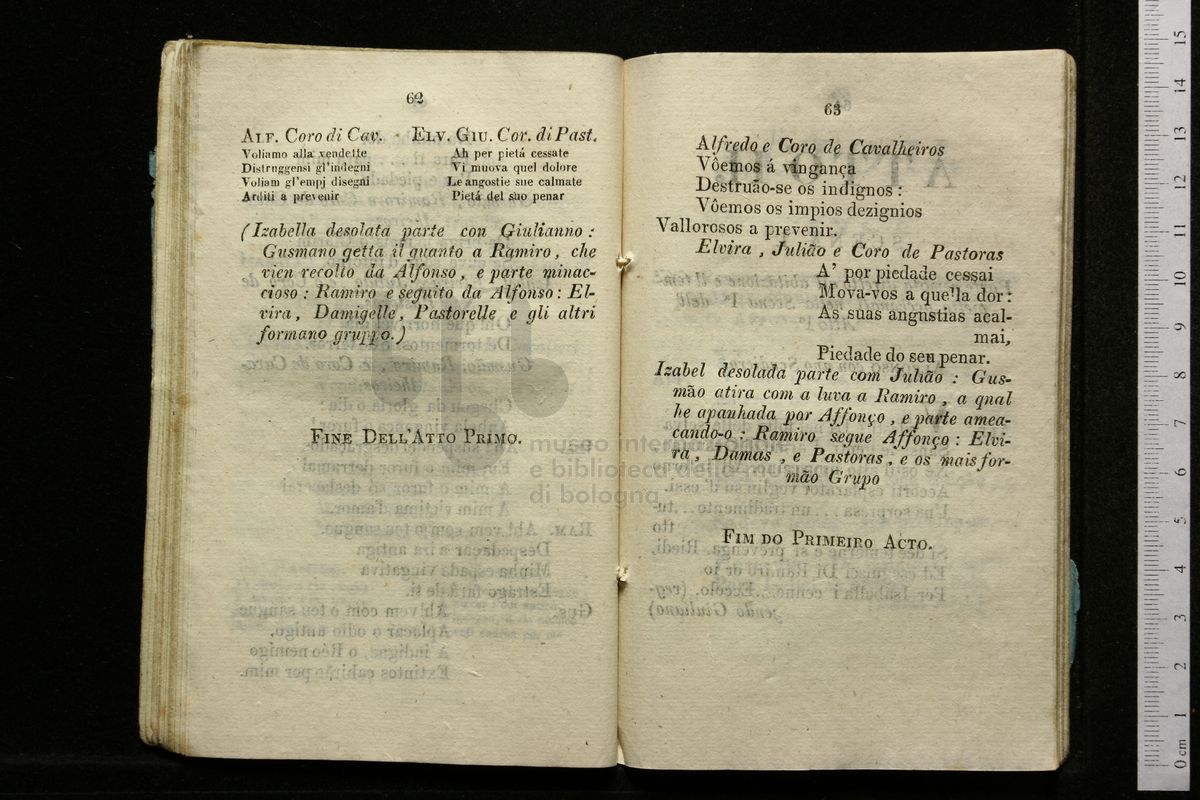 62
ALF. Coro di Cav. - ELV. GIU. Cor. di Past.
Voliamo alla vendette
Distruggensi gl'indegni
Voliam gl'empj disegni
Arditi a prevenir
Ah per pietá cessate
Vi muova quel dolore
Le angostie sue calmate
Pietá del suo penar
(Izabella desolata parte con Giulianno :
Gusmano getta il guanto a Ramiro, che
vien recolto da Alfonso, e parte minac-
cioso : Ramiro e seguito da Alfonso: El-
vira, Damigelle, Pastorelle e gli altri
formano gruppo.)
FINE DELL'ATTO PRIMO.
63
Alfredo e Coro de Cavalheiros
Vôemos á vingança
Destruão-se os indignos :
Vôemos os impios dezignios
Vallorosos a prevenir.
Elvira, Julião e Coro de Pastoras
A' por piedade cessai
Mova-vos a que'la dor:
As suas angustias acal-
mai,
Piedade do seu penar.
Izabel desolada parte com Julião : Gus-
mão atira com a luva a Ramiro, a qual
he apanhada por Affonço, e parte amea-
cando-o : Ramiro segue Affonço : Elvi-
ra, Damas, e Pastoras, e os mais for-
mão Grupo
FIM DO PRIMEIRO ACTO.
museo internazionale
e biblioteca della musica
di bologna
0 cm 1 2 3 4 5 6 7 8 9 10 11 12 13 14 15